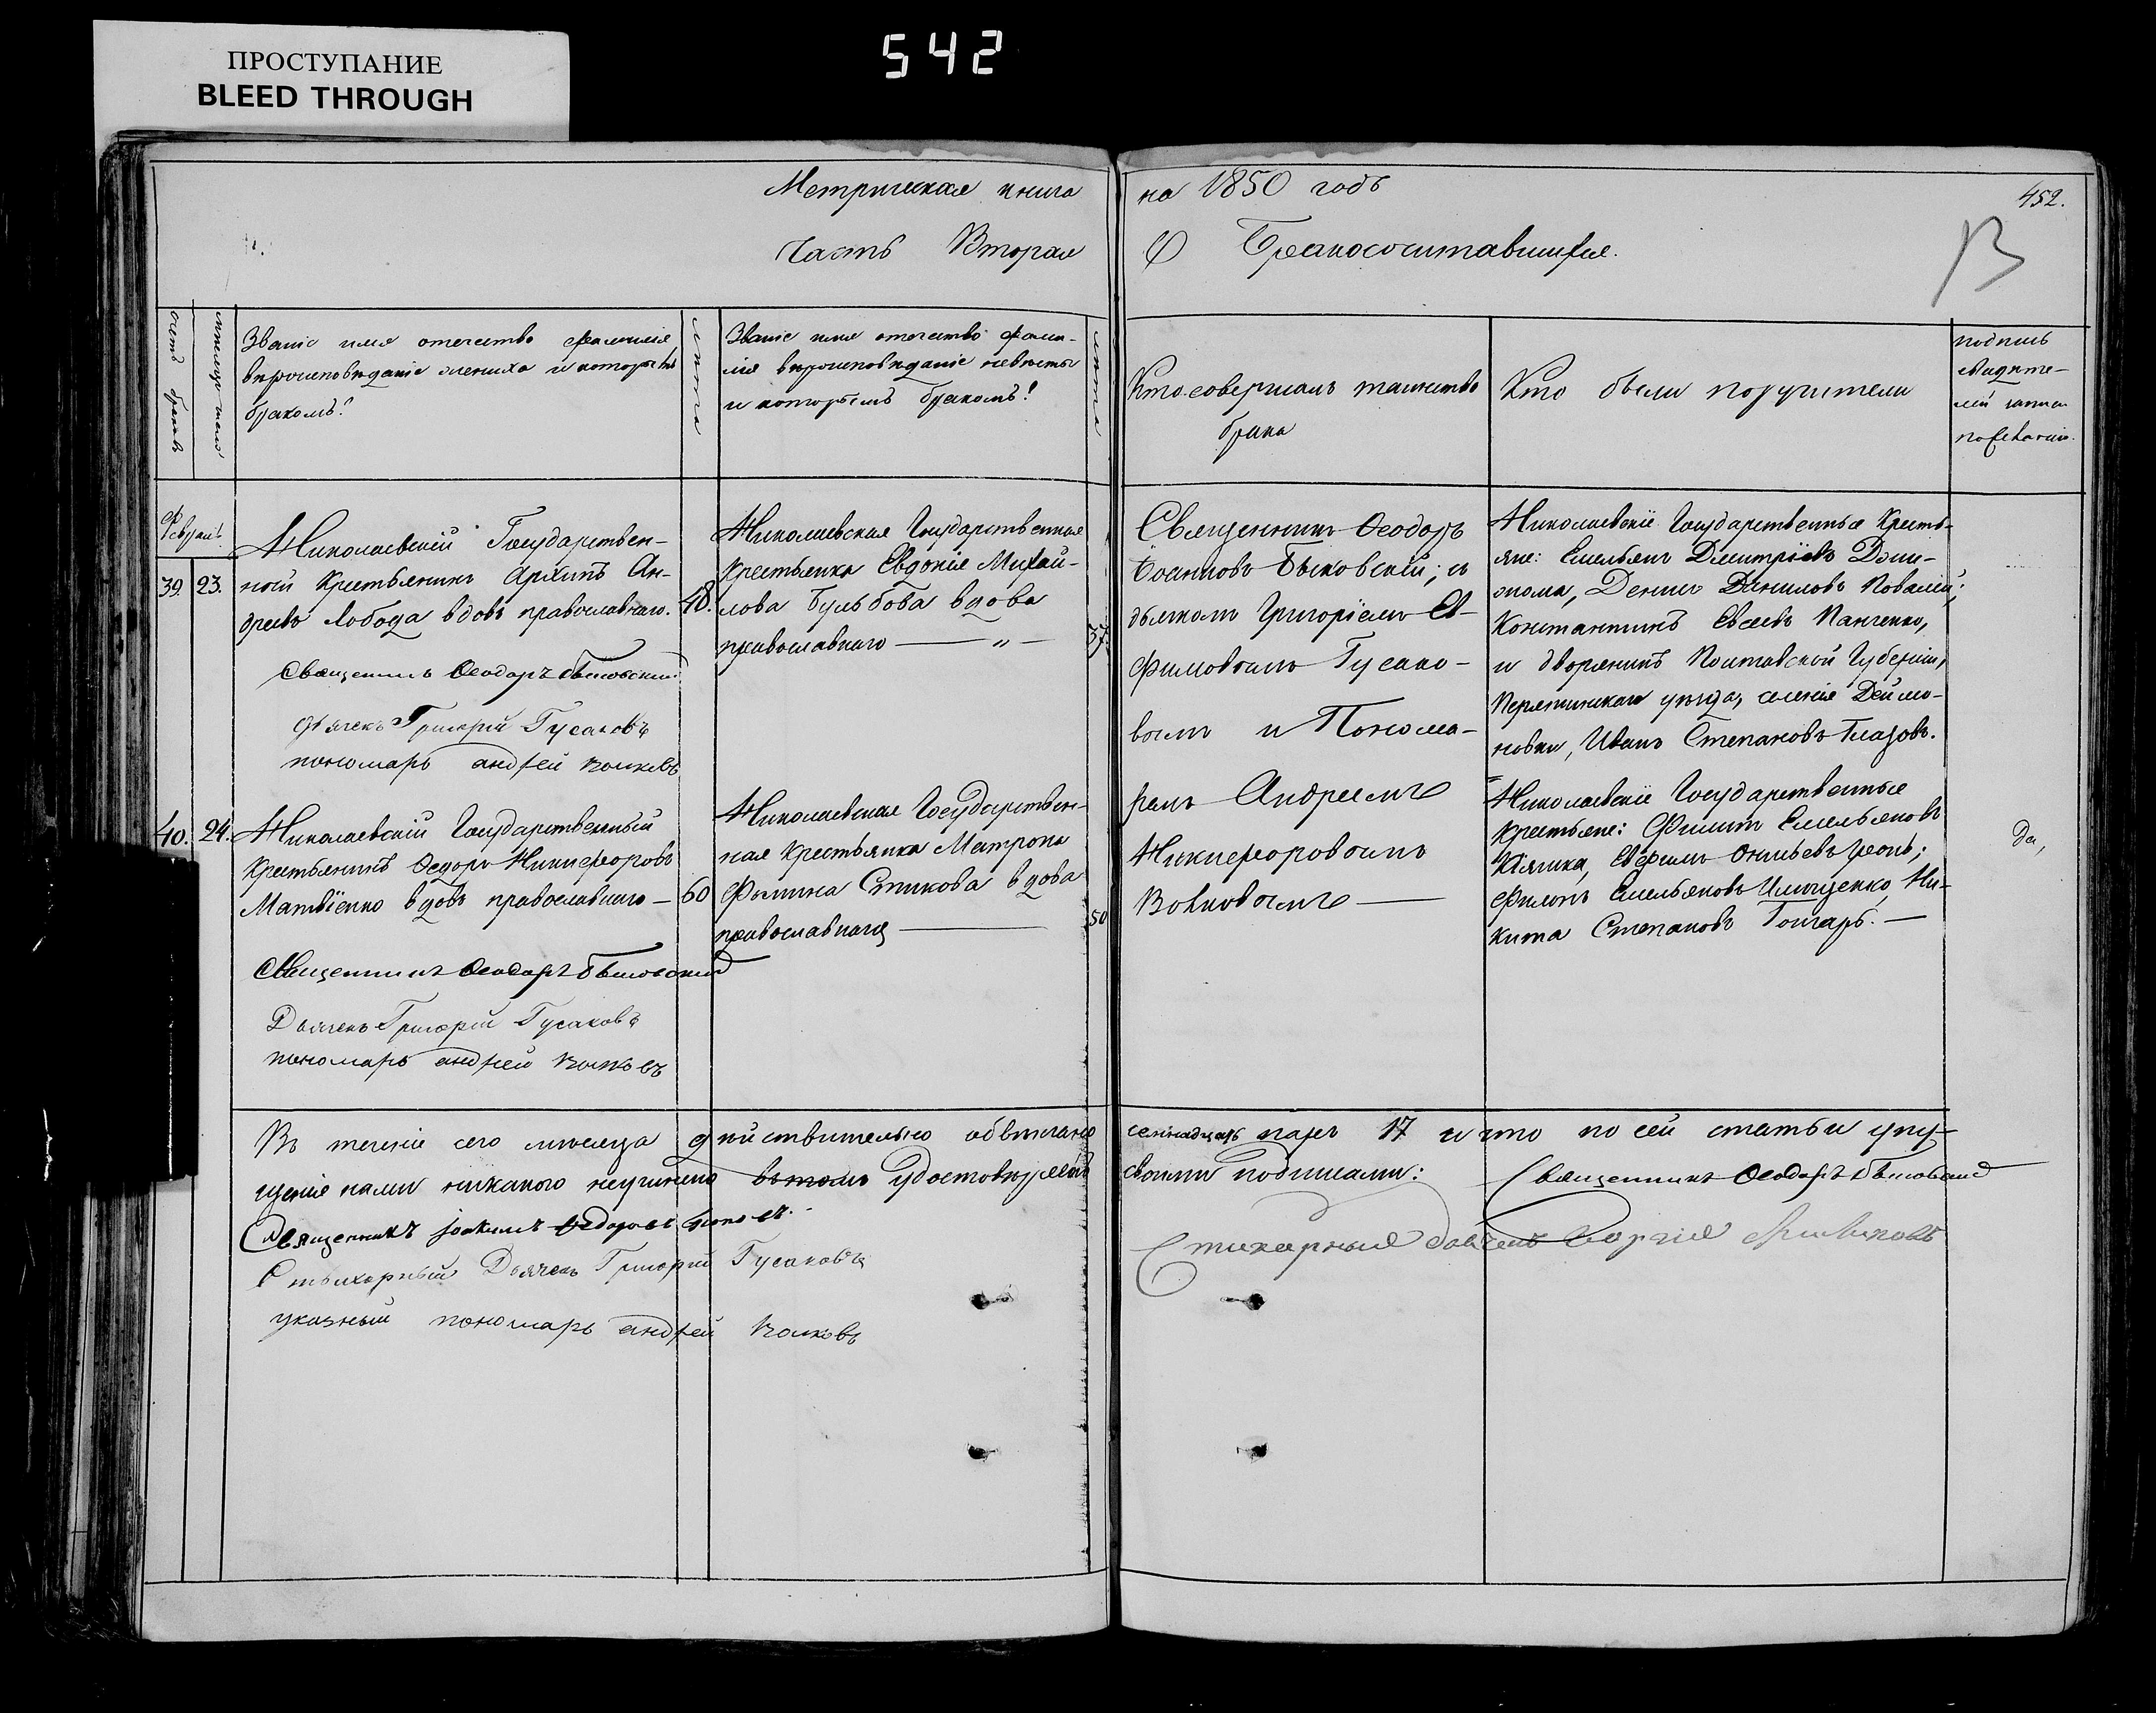 ПРОСТУПАНИЕ
BLEED THROUGH
542
Метрическая книга
на 1850 годъ
452.
Часть Вторая
О Бракосочитавшихся.
В
счетъ браковъ
Званіе имя отечество фамилія,
вѣроисповѣданіе жениха и которымъ
бракомъ?
лѣта
Званіе имя отечество фами-
лія вѣроисповѣданіе невѣсты
и которымъ бракомъ?
лѣта
Кто совершалъ таинство
брака
Кто были поручители
подпись
свидѣте-
лей
Февраль
39. 23.
Николаевскій Государствен-
ный Крестьянинъ Архипъ Ан-
дреевъ Лобода вдовъ православнаго.
48.
Священникъ Ѳеодоръ Быковскій
Дьячекъ Григорій Гусаковъ
пономарь андрей волковъ
Николаевская Государственная
Крестьянка Евдокія Михай-
лова Бульбова вдова
православнаго — „ —
37.
Священникъ Ѳеодоръ
Іоанновъ Быковскій; съ
дьячкомъ Григоріемъ Ев-
фимовымъ Гусако-
вымъ и Понома-
ремъ Андреемъ
Никифоровымъ
Волковымъ —
Николаевскіе Государственные Кресть-
яне: Емельянъ Дмитріевъ
Денисъ Даниловъ Ковалій;
Константинъ Евсѣевъ Панченко,
и дворянинъ Полтавской Губерніи,
Пирятинскаго уѣзда, селенія Деймо-
новки, Иванъ Степановъ Глазовъ.
40. 24.
Николаевскій Государственный
Крестьянинъ Ѳедоръ Никифоровъ
Матвіенко вдовъ православнаго —
60
Священникъ Ѳеодоръ Быковскій
Дьячекъ Григорій Гусаковъ
пономарь андрей волковъ
Николаевская Государствен-
ная Крестьянка Матрона
Фомина Стикова вдова
православнаго —
50
Николаевскіе Государственные
Крестьяне: Филиппъ Емельяновъ
Кіячка, Евфимъ
Филипъ Емельяновъ Ильященко, Ни-
кита Степановъ Гончарь. —
Да,
Въ теченіе сего мѣсяца дѣйствительно обвѣнчано
семнадцать паръ 17 и что по сей статьи упу-
щенія нами никакого неучинено въ томъ удостовѣряемъ
своими подписами: Священникъ Ѳеодоръ Быковскій
Священникъ Іоакимъ Ѳедоровъ Поповъ.
Стихарный Дьячекъ Григорій Гусаковъ
Стихарный дьячекъ Георгій
указный пономарь андрей волковъ